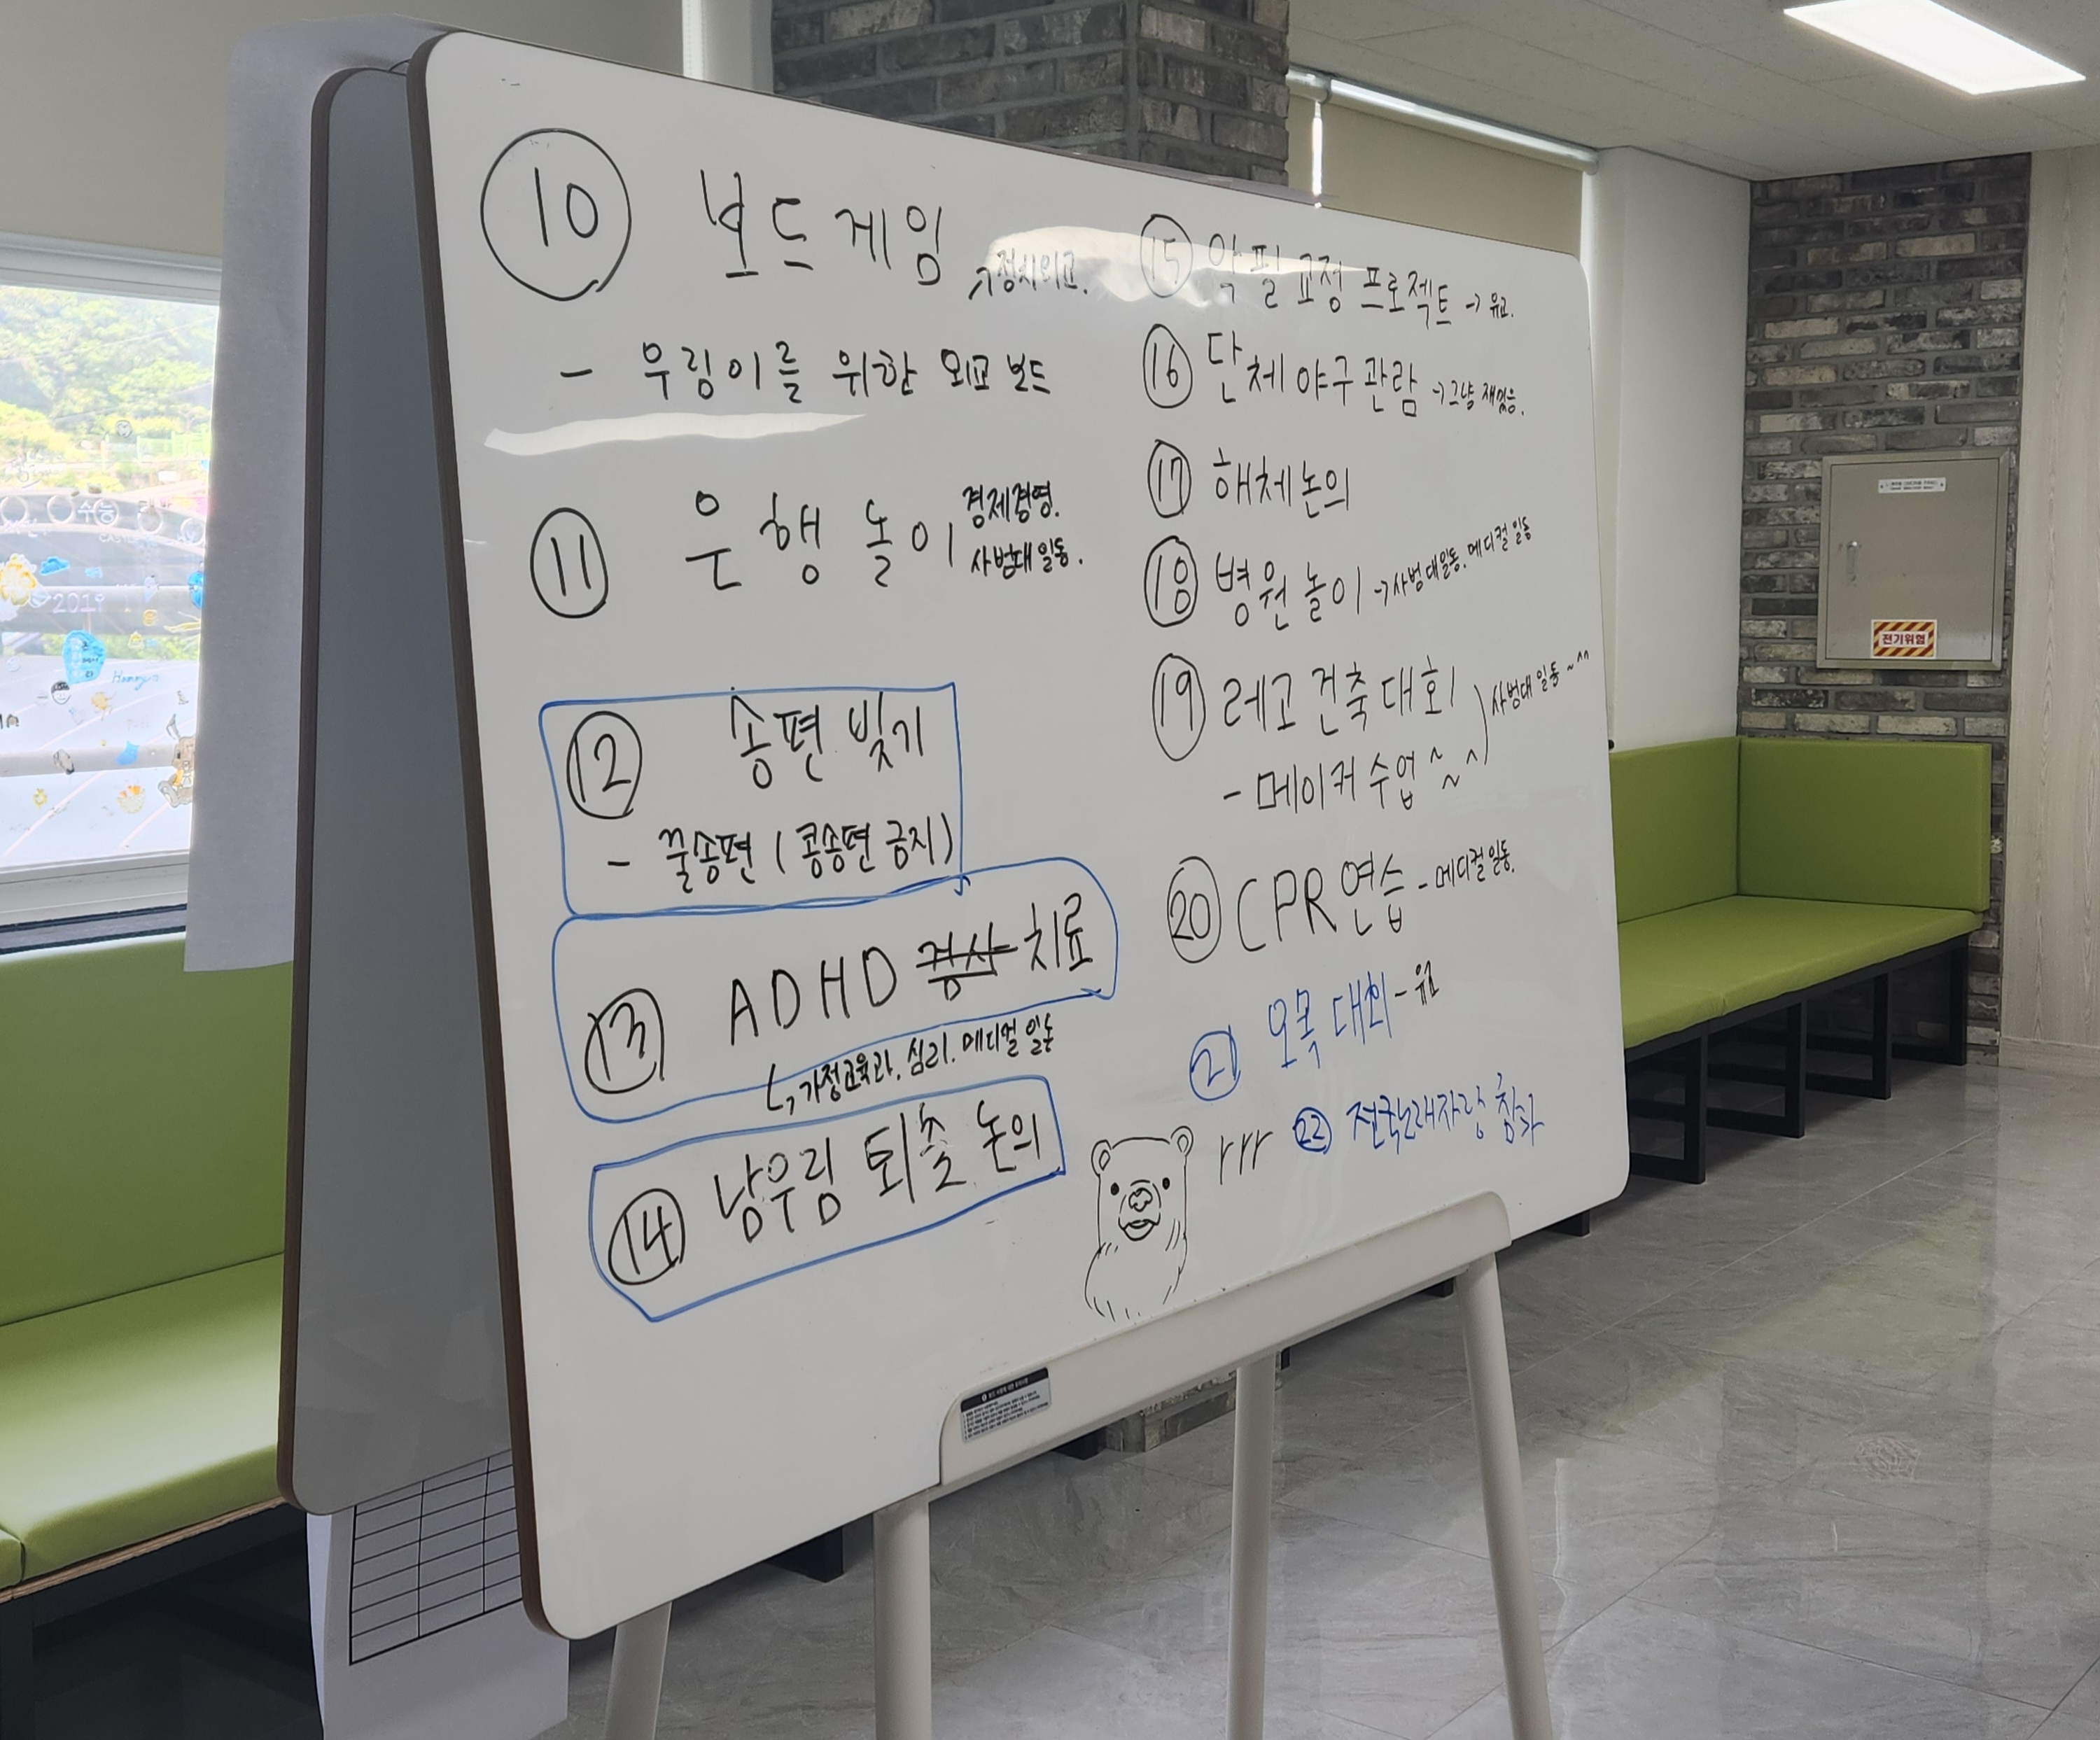 ⑩ 보드게임 →정치외교.
- 우림이를 위한 외교 보드
⑪ 은행 놀이 경제경영.
사범대 일동.
⑫ 송편 빚기
- 꿀송편 (콩송편 금지)
⑬ ADHD 검사 치료
↳ 가정교육과. 심리. 메디컬 일동
⑭ 남우림 퇴출 논의
⑮ 악필 교정 프로젝트 → 유교.
⑯ 단체 야구 관람 → 그냥 재밌음.
⑰ 해체 논의
⑱ 병원 놀이 → 사범대일동. 메디컬 일동
⑲ 레고 건축 대회
- 메이커 수업 ~ ~ ^
사범대 일동 ~ ^^
⑳ CPR 연습 - 메디컬 일동.
㉑ 오목 대회 -
㉒ 전국노래자랑 참가
rrr
전기위험
2019